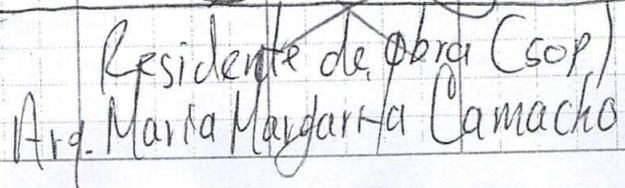 Residente de obra (SOP)
Arq. Maria Margarita Camacho